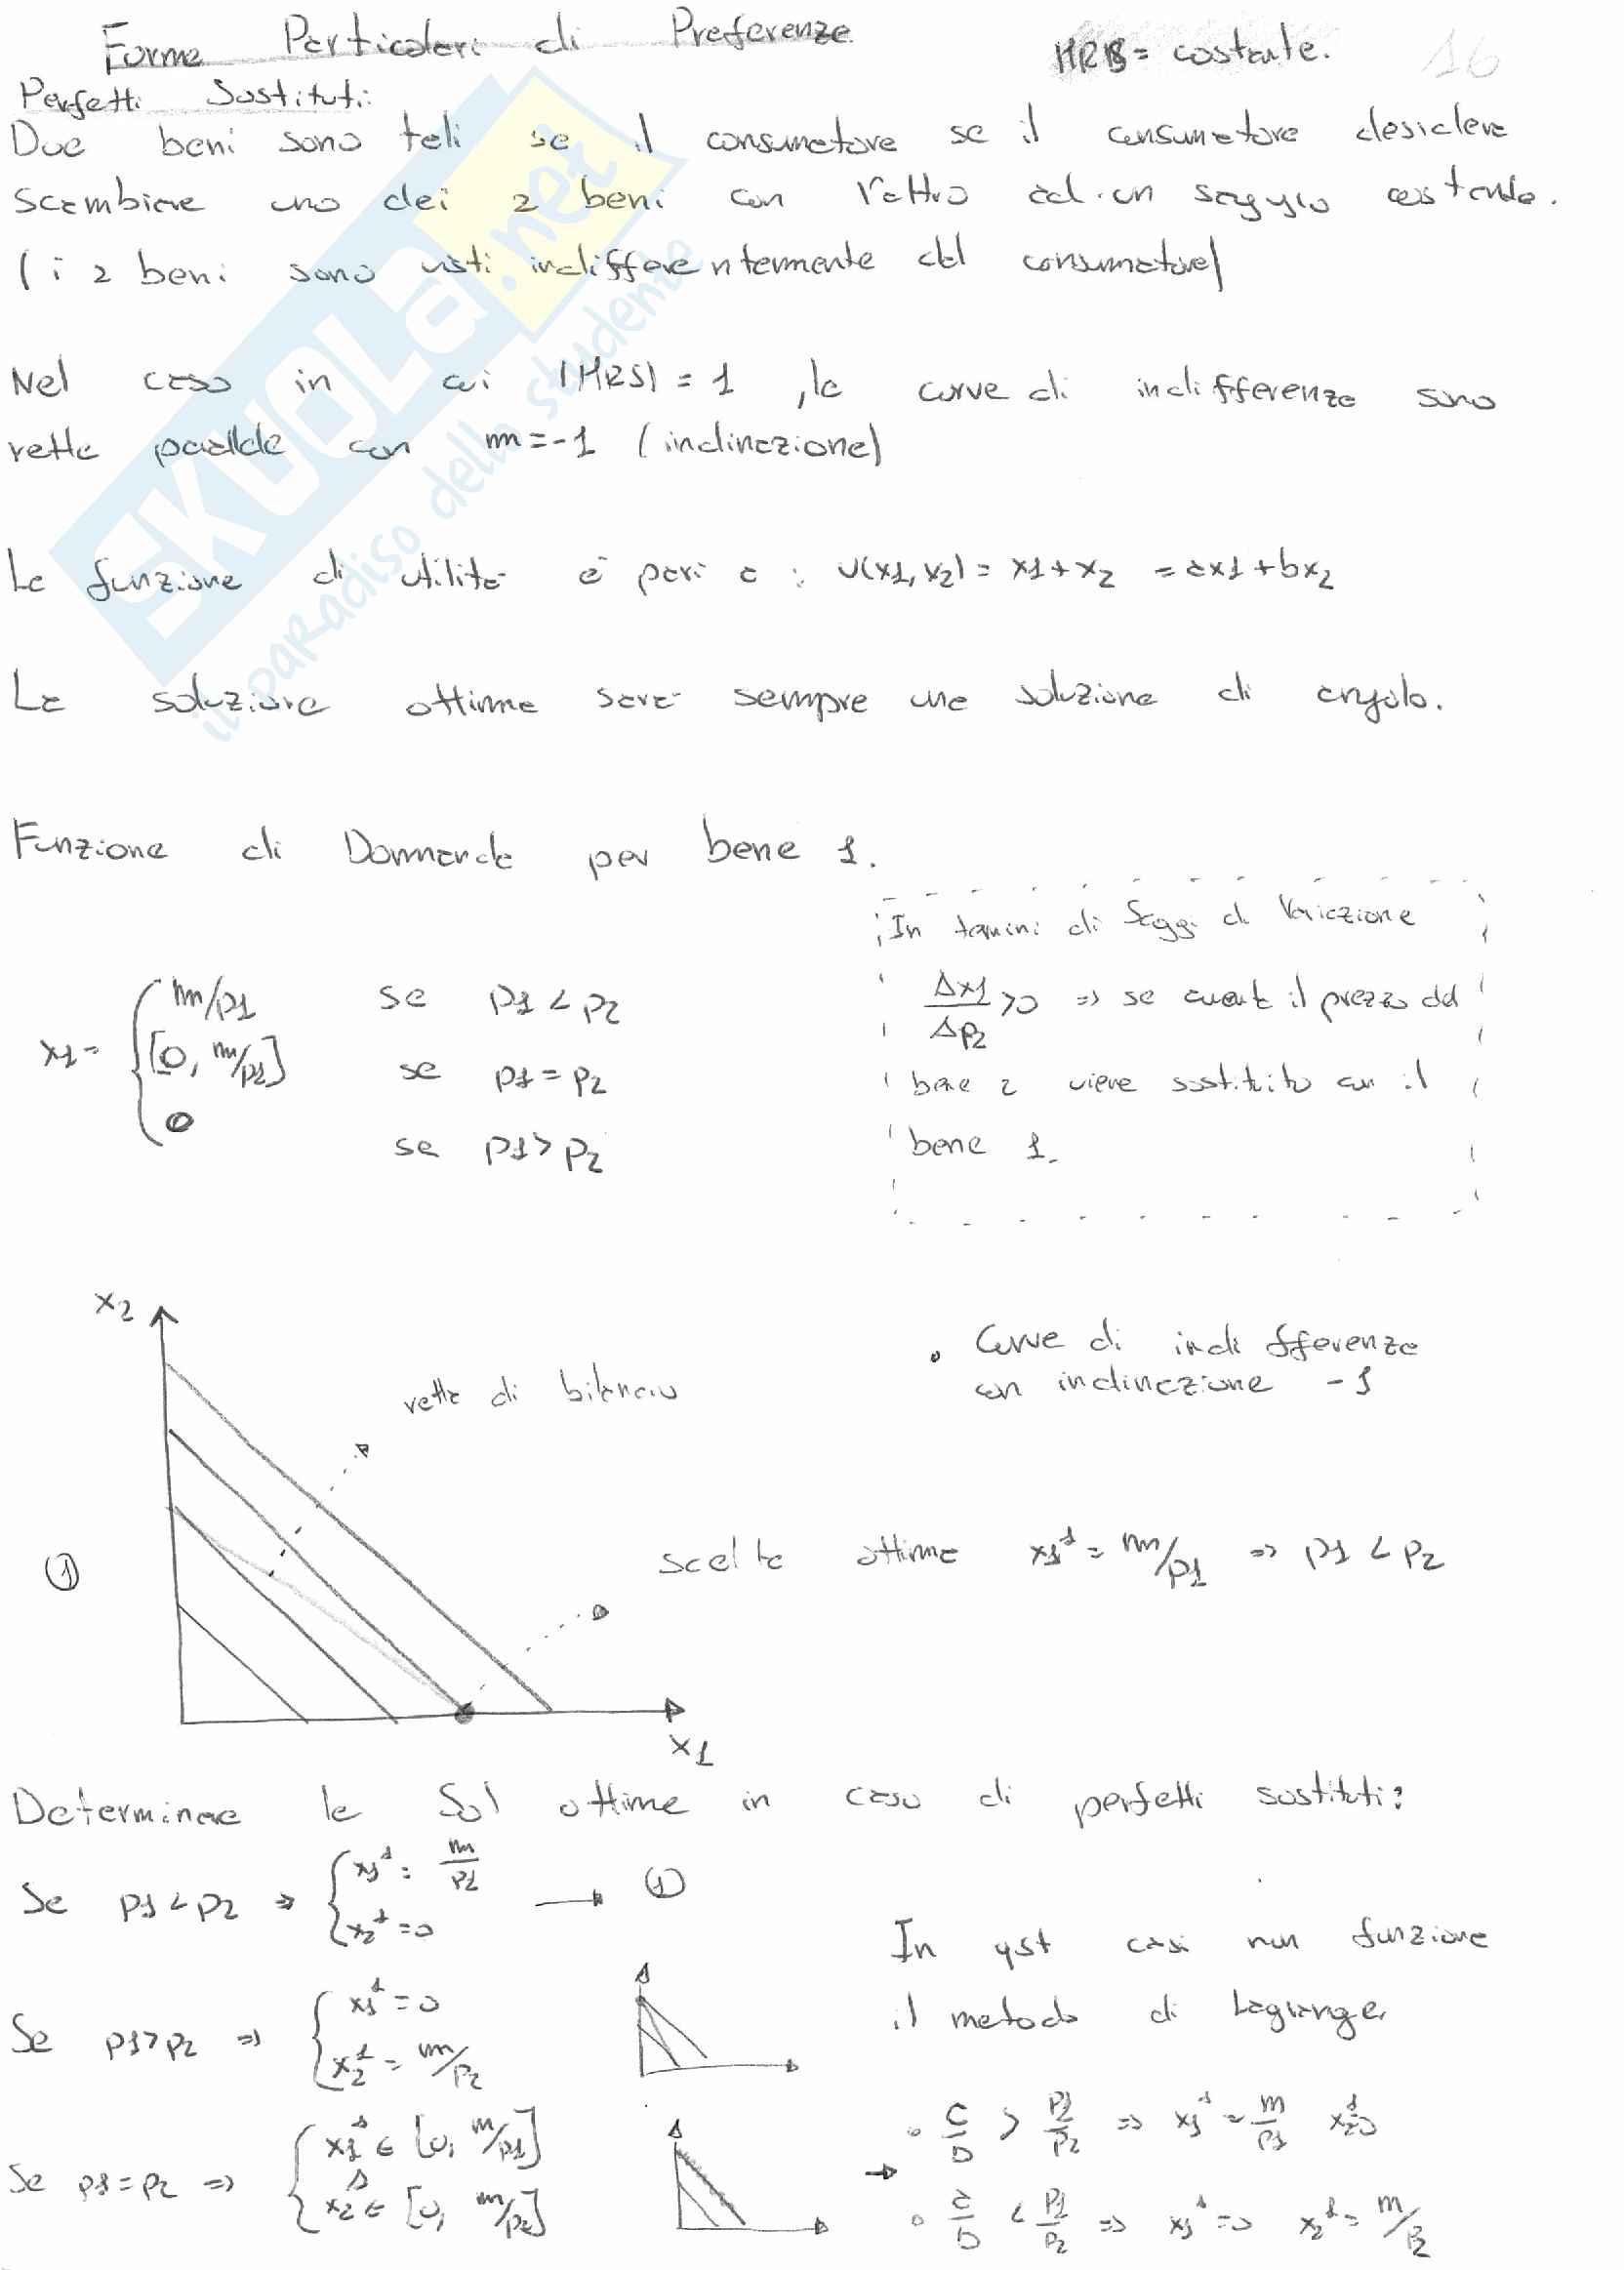 Forme Particolari di Preferenze
MRS = costante. 16
Perfetti Sostituti:
Due beni sono tali se il consumatore se il consumatore desidera
scambiare uno dei 2 beni con l'altro ad un saggio costante.
(i 2 beni sono visti indifferentemente dal consumatore)
Nel caso in cui |MRS| = 1, le curve di indifferenza sono
rette parallele con m=-1 (inclinazione)
La funzione di utilità è pari a: U(x1, x2) = x1+x2 = ax1+bx2
La soluzione ottima sarà sempre una soluzione di angolo.
Funzione di Domanda per bene 1.
x1=
m/p1 se p1 < p2
[0, m/p1] se p1 = p2
0 se p1 > p2
In termini di Saggi di Variazione
Δx1/Δp2 >0 => se aumenta il prezzo del
bene 2 viene sostituito con il
bene 1.
x2
retta di bilancio
• Curve di indifferenza
con inclinazione -1
①
scelta ottima x1* = m/p1 => p1 < p2
x1
Determinare la Sol ottima in caso di perfetti sostituti:
Se p1 < p2 => { x1* = m/p1
x2* = 0
→ ①
In qst casi non funziona
il metodo di Lagrange.
Se p1 > p2 => { x1* = 0
x2* = m/p2
Se p1 = p2 => { x1* ∈ [0, m/p1]
x2* ∈ [0, m/p2]
→
• a/b > p1/p2 => x1* = m/p1 x2* = 0
• a/b < p1/p2 => x1* = 0 x2* = m/p2
SKUOLA.net
il paradiso dello studente